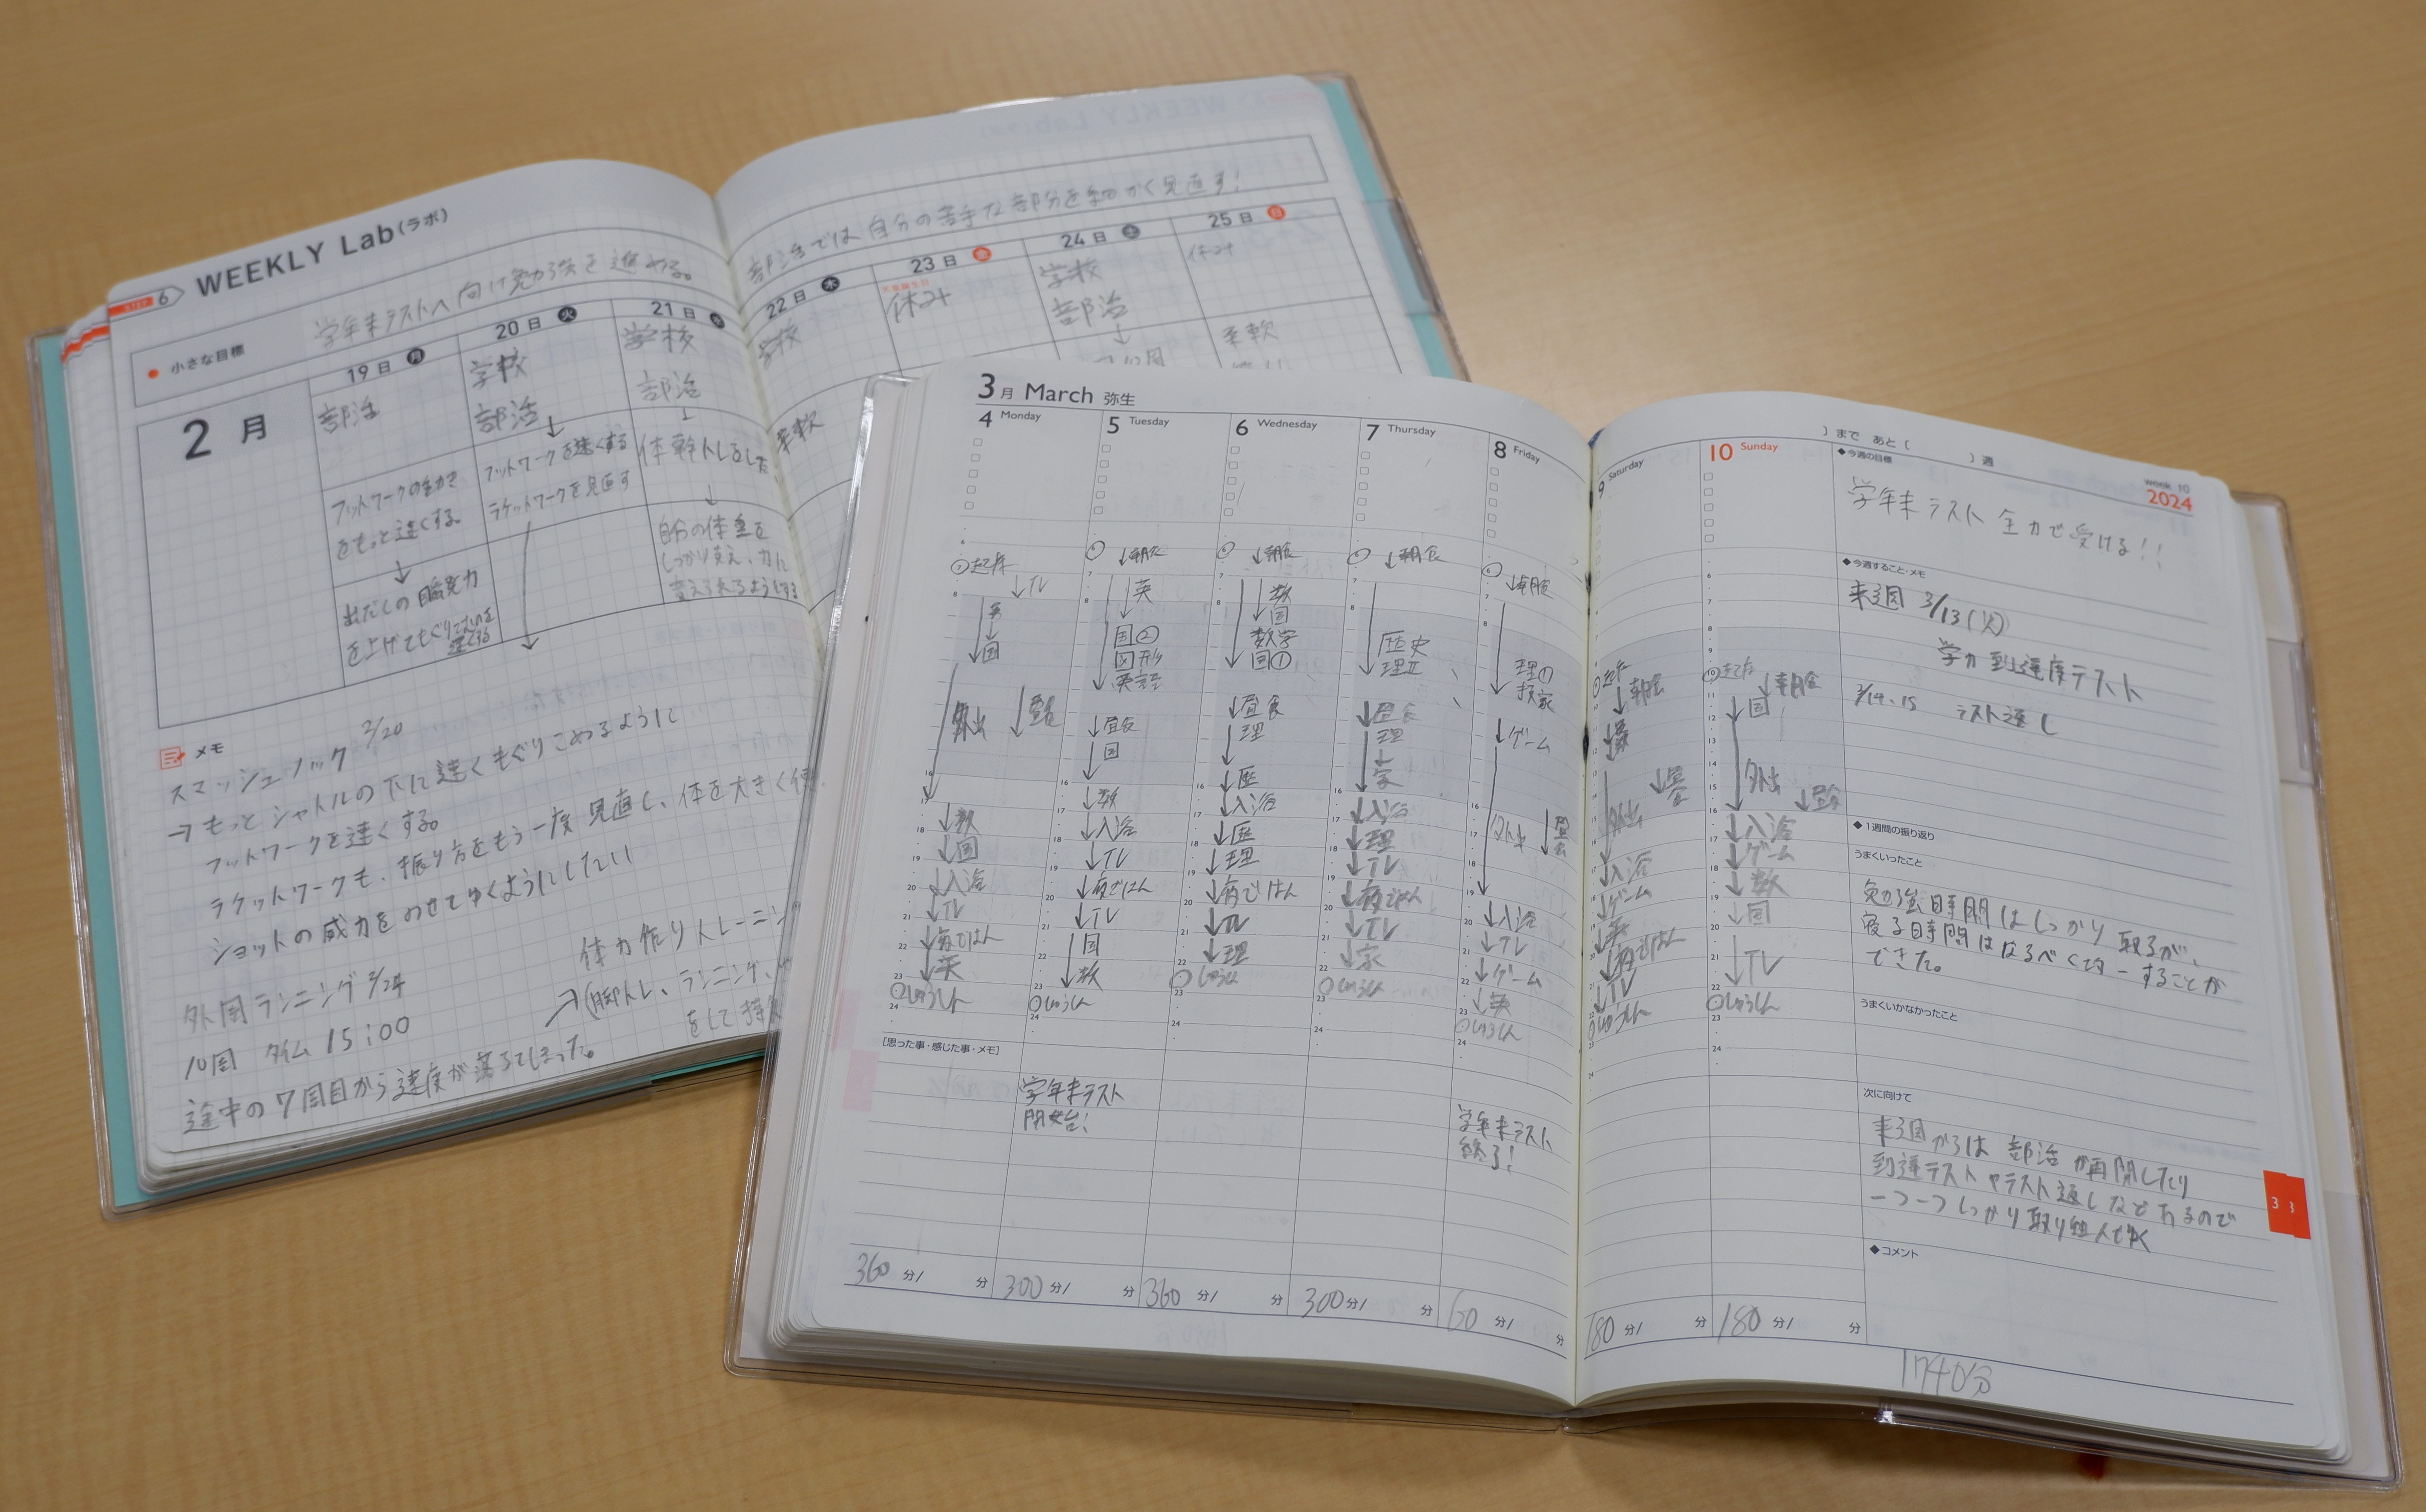 WEEKLY Lab(ラボ)
STEP 6
小さな目標
学年末テストへ向け勉強を進める。
部活では自分の苦手な部分を細かく見直す!
2月
19日 月
部活
フットワークの動き
をもっと速くする。
出だしの瞬発力
を上げてもぐり
20日 火
学校
部活
フットワークを速くする
ラケットワークを見直す
21日 水
学校
部活
体幹トレをした
自分の体重を
しっかり支え、力に
変えられるようにする
22日 木
学校
柔軟
23日 金
天皇誕生日
休み
24日 土
学校
部活
25日 日
休み
柔軟
メモ
スマッシュノック 2/20
→もっとシャトルの下に速くもぐりこめるように
フットワークを速くする。
ラケットワークも、振り方をもう一度見直し、体を大きく使
ショットの威力をのせてゆくようにしたい
外周ランニング 2/24
10周 タイム 15:00
途中の7周目から速度が落ちてしまった。
体力作りトレーニン
→(脚トレ、ランニング、
をして持
3月 March 弥生
4 Monday
起床
↓TV
英
↓
国
外出
↓昼食
↓数
↓国
↓入浴
↓TV
↓夜ごはん
↓英
しゅうしん
5 Tuesday
↓朝食
英
国②
図形
英語
↓昼食
↓国
↓数
↓入浴
↓TV
↓夜ごはん
↓TV
国
↓数
しゅうしん
6 Wednesday
↓朝食
数
国
数学
国①
↓昼食
理
↓歴
↓入浴
↓歴
↓理
↓夜ごはん
↓TV
↓理
しゅうしん
7 Thursday
↓朝食
歴史
理
↓昼食
理
↓
家
↓入浴
↓理
↓TV
↓夜ごはん
↓TV
↓家
しゅうしん
8 Friday
↓朝食
理①
技家
↓ゲーム
外出
↓昼食
↓入浴
↓TV
↓ゲーム
↓英
しゅうしん
9 Saturday
起床
↓朝食
↓昼食
外出
↓入浴
↓ゲーム
↓英
↓夜ごはん
↓TV
しゅうしん
10 Sunday
起床
↓朝食
国
外出
↓昼食
↓入浴
↓ゲーム
↓数
↓国
↓TV
しゅうしん
[思った事・感じた事・メモ]
学年末テスト
開始!
学年末テスト
終了!
360 分/ 分
300 分/ 分
360 分/ 分
300 分/ 分
60 分/ 分
180 分/ 分
180 分/ 分
1740分
)まで あと( )週
week 10
2024
◆今週の目標
学年末テスト 全力で受ける!!
◆今週すること・メモ
来週 3/13(火)
学力到達度テスト
3/14.15 テスト返し
◆1週間の振り返り
うまくいったこと
勉強時間はしっかり取るが、
寝る時間はなるべく均一することが
できた。
うまくいかなかったこと
次に向けて
来週からは部活が再開したり
到達テストやテスト返しなどあるので
一つ一つしっかり取り組んでゆく
◆コメント
3
3